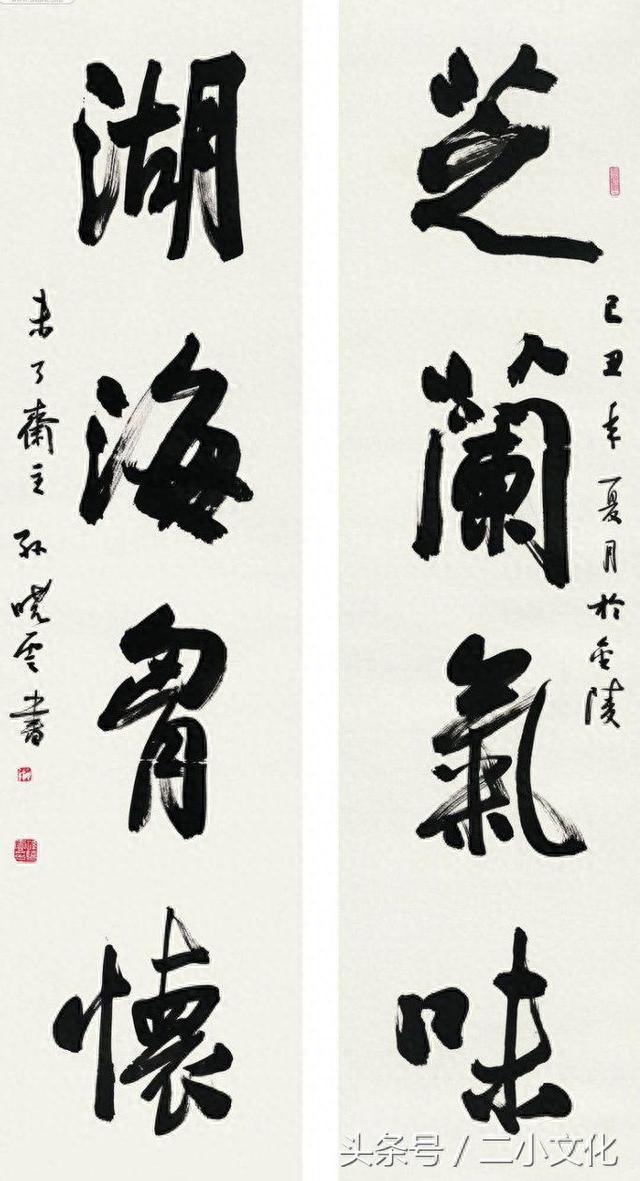 芝蘭氣味
己丑年夏月於金陵
湖海胷懷
未了齋主孫曉雲書
头条号/二小文化